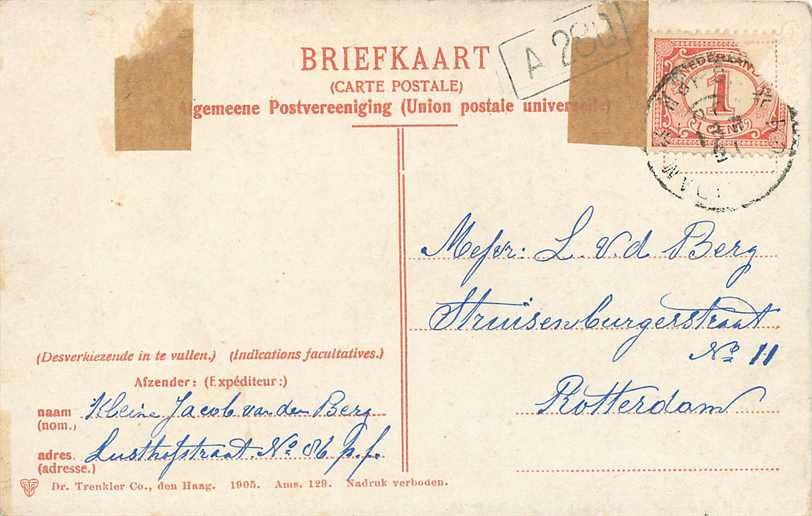 BRIEFKAART
(CARTE POSTALE)
Algemeene Postvereeniging (Union postale universelle)
A 280
NEDERLAND
1
CENT
Mejvr: L. v.d Berg
Struisenburgerstraat
No 11
Rotterdam
(Desverkiezende in te vullen.) (Indications facultatives.)
Afzender: (Expéditeur:)
naam Kleine Jacob van den Berg
(nom.)
adres Lusthofstraat. No 86 p.f.
(adresse.)
Dr. Trenkler Co., den Haag. 1905. Ams. 129. Nadruk verboden.